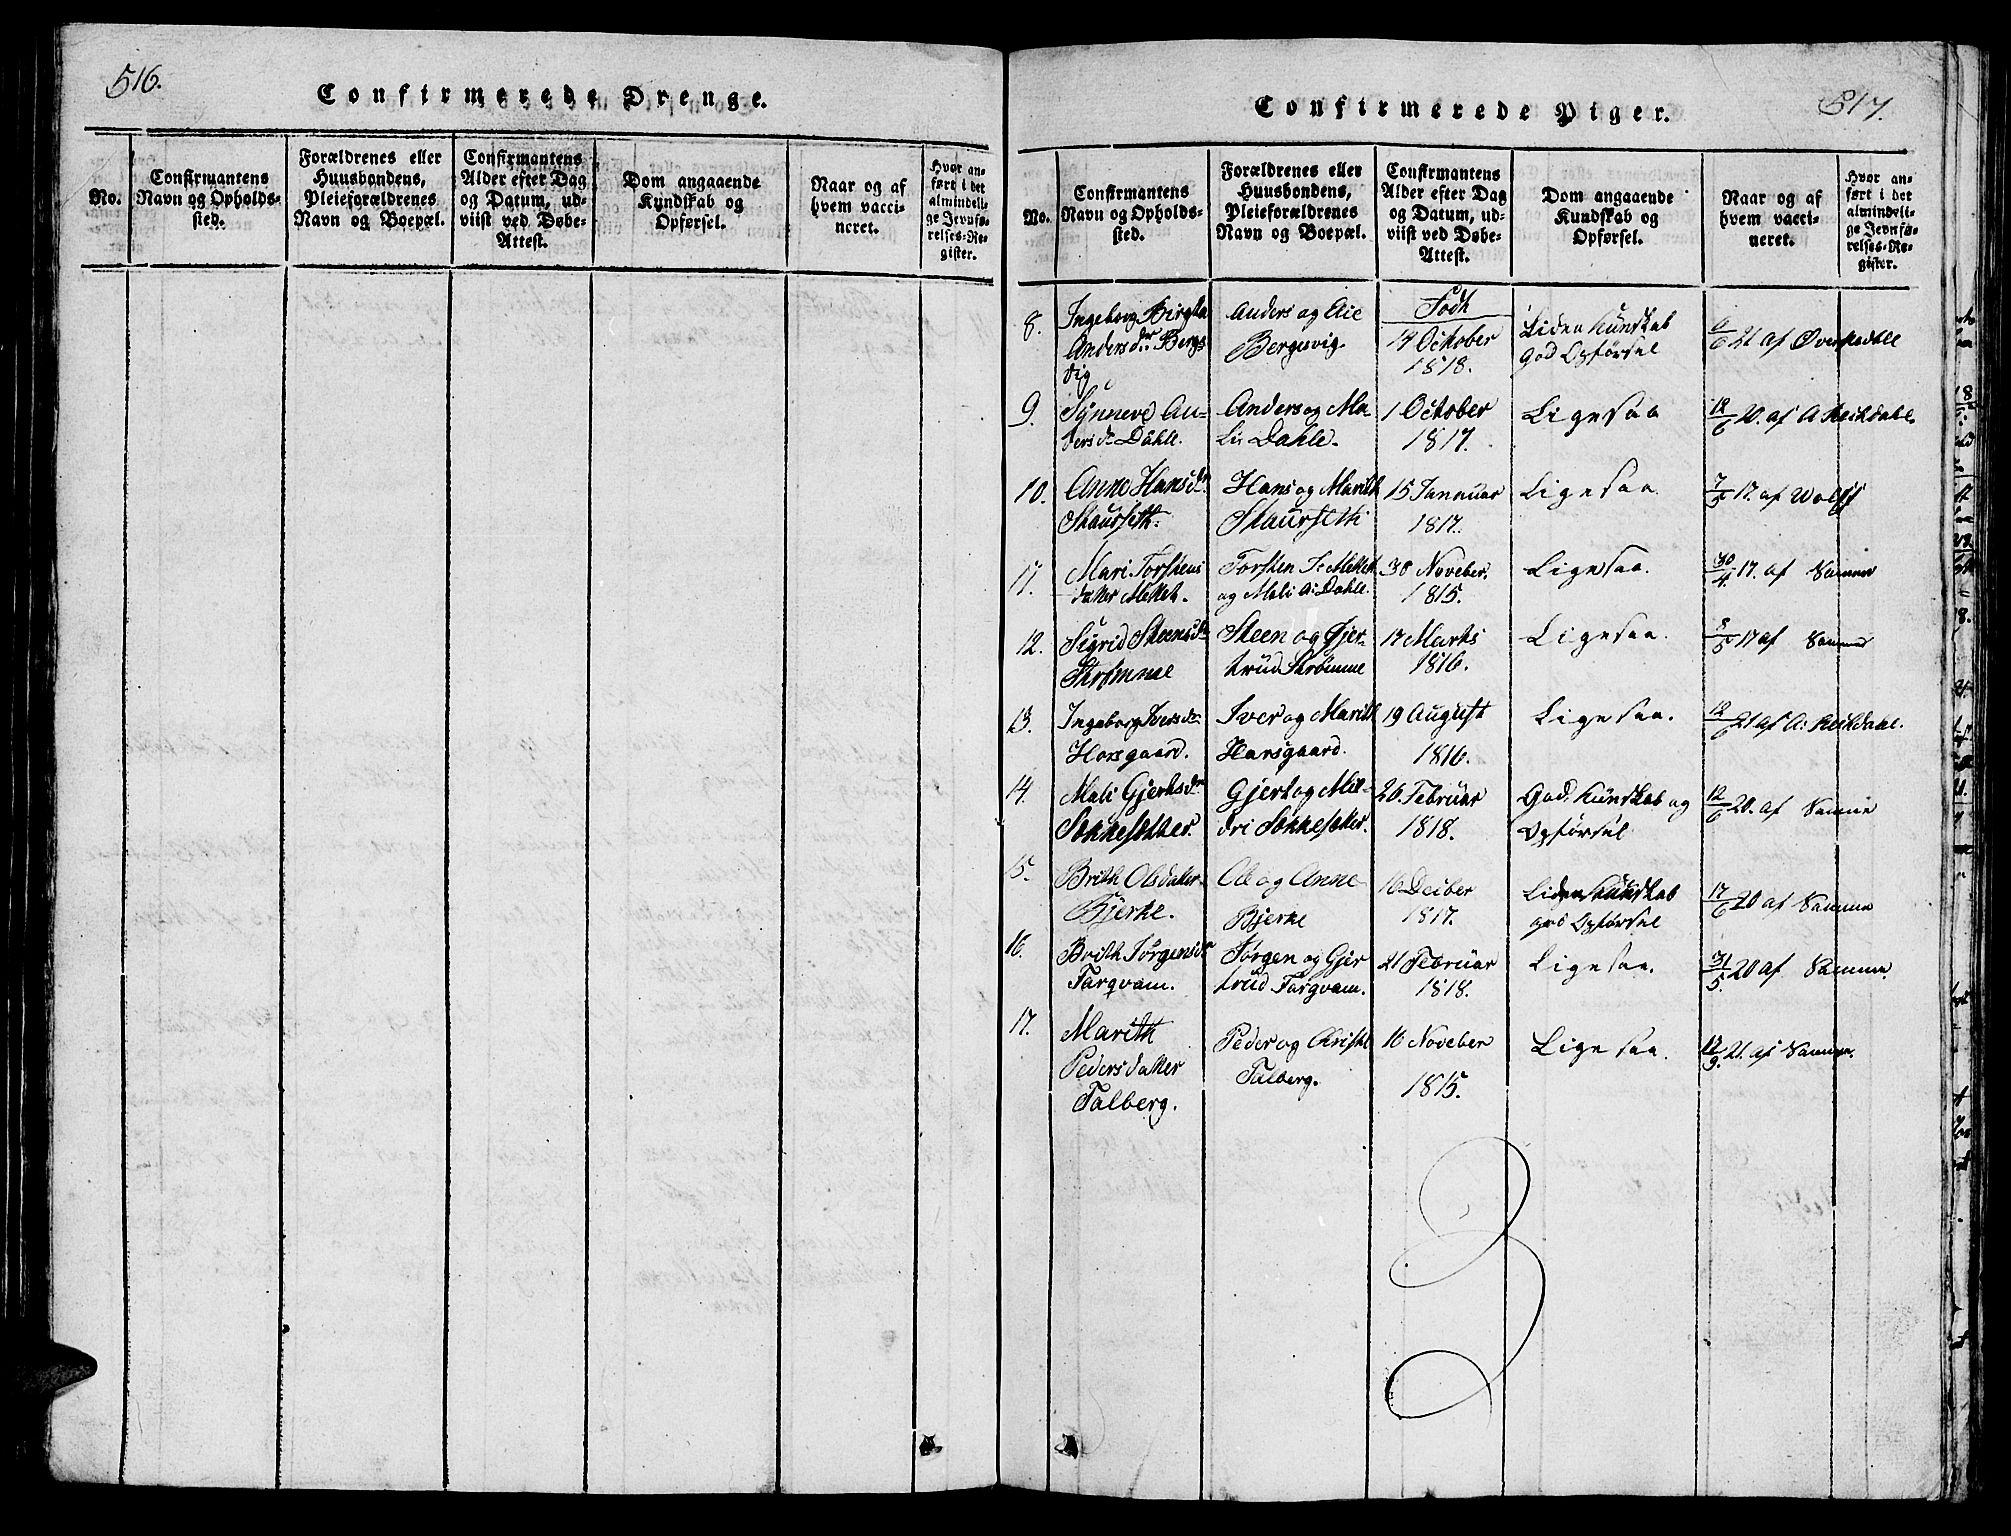 516.
Confirmerede Drenge.
No.
Confirmantens
Navn og Opholds-
sted.
Forældrenes eller
Huusbondens,
Pleieforældrenes
Navn og Boepæl.
Confirmantens
Alder efter Dag
og Datum, ud-
viist ved Døbe-
Attest.
Dom angaaende
Kundskab og
Opførsel.
Naar og af
hvem vacci-
neret.
Hvor an-
ført i det
almindeli-
ge Jevnfø-
relses-Re-
gister.
517.
Confirmerede Piger.
No.
Confirmantens
Navn og Opholds-
sted.
Forældrenes eller
Huusbondens,
Pleieforældrenes
Navn og Boepæl.
Confirmantens
Alder efter Dag
og Datum, ud-
viist ved Døbe-
Attest.
Dom angaaende
Kundskab og
Opførsel.
Naar og af
hvem vacci-
neret.
Hvor an-
ført i det
almindeli-
ge Jevnfø-
relses-Re-
gister.
8.
Ingeborg
Andersdr Bergs
vig
Anders og
Bergsvig
Født
17 October
1818.
Liden Kunskab
God Opførsel
6/6 21 af
9.
Synneve An-
dersdr Dahle.
Anders og Ma-
li Dahle.
1 October
1817.
Ligesaa
12/6 20. af A
10.
Anne Hansdr
Skaurseth.
Hans og Marith
Skaurseth
15 Januar
1817.
Ligesaa.
7/5 17. af Wolff
11.
Mari Torstens
datter
Torsten
og Mali A: Dahle.
30 Noveber.
1815.
Ligesaa.
30/4 17. af Samme
12.
Sigrid Steensdr
Strømme
Steen og Gjer-
trud Strømme
17 Marts
1816.
Ligesaa.
8/5 17 af Samme
13.
Ingeborg Iversdr
Horsgaard.
Iver og Marith
Horsgaard.
19 August
1816.
Ligesaa.
12/6 21 af A:
14.
Mali Gjertsdr
Søkkesetter.
Gjert og Mil-
dri Søkkesetter.
26. Februar
1818.
God Kunskab og
Opførsel
12/6 20. af Samme
15.
Brith Olsdatter
Bjerke.
Ole og Anne
Bjerke
16 Deciber
1817.
Liden Kunskab
god Opførsel
17/6 20 af Samme
16.
Brith Jørgensdr
Targvam.
Jørgen og Gjer
trud Targvam.
21 Februar
1818.
Ligesaa.
31/5 20 af Samme.
17.
Marith
Pedersdatter
Talberg.
Peder og
Talberg.
16 Noveber
1815.
Ligesaa.
12/9 21. af Samme.